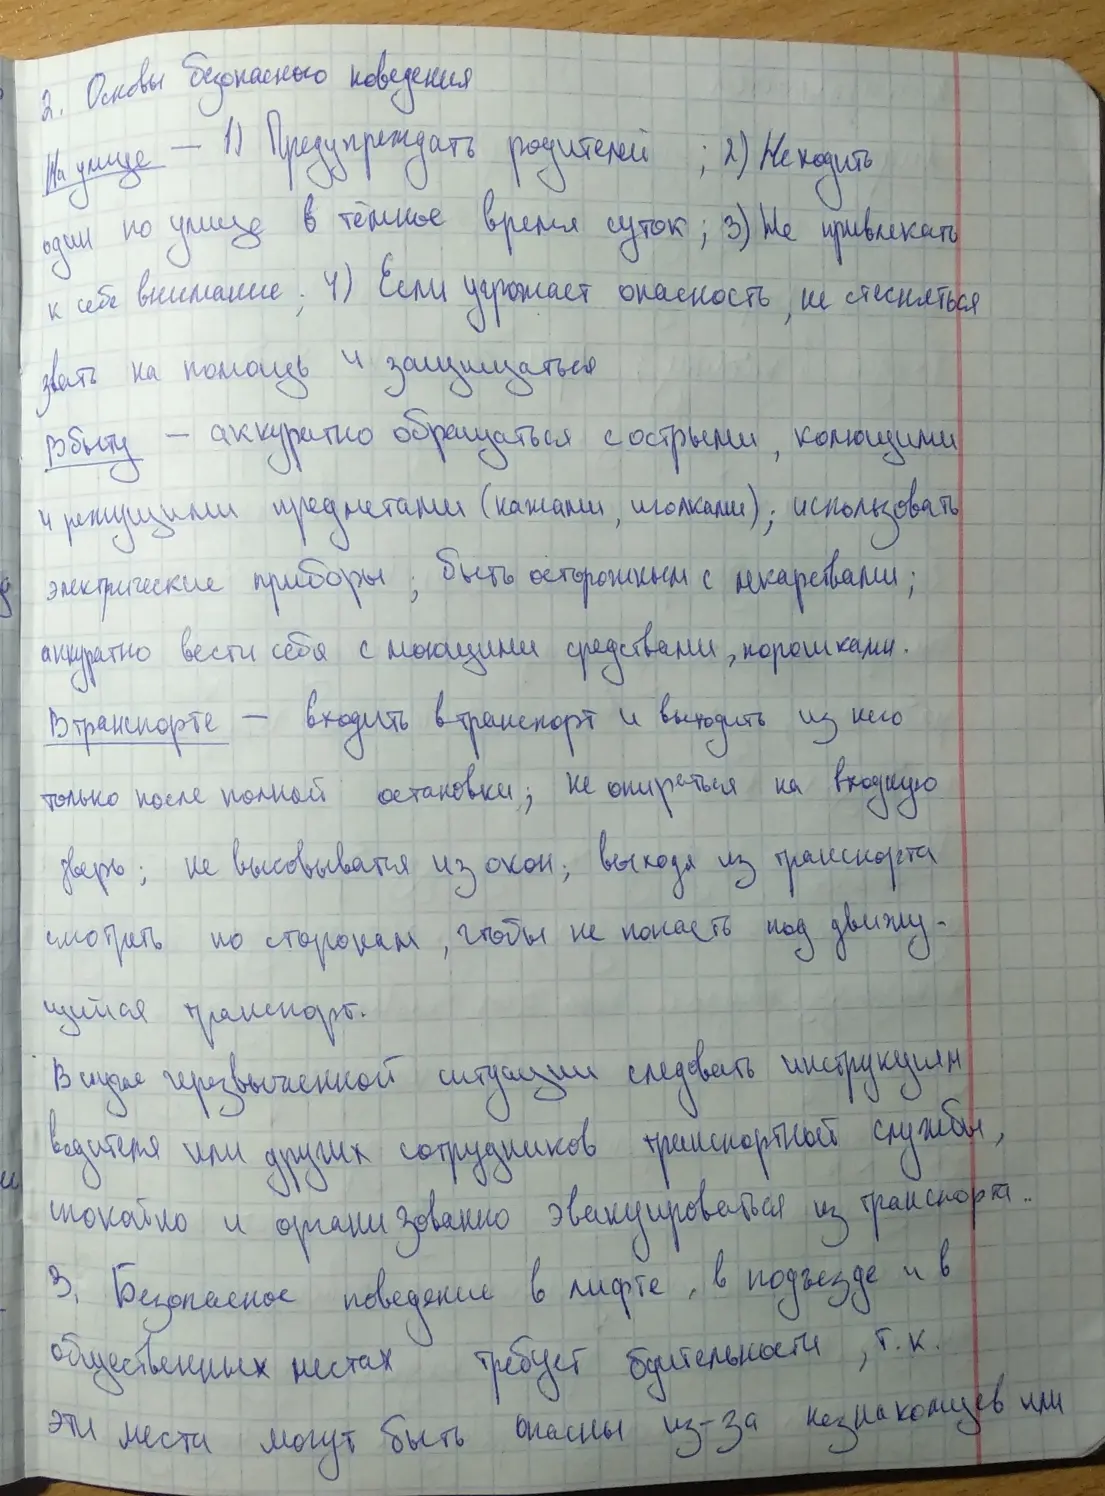 2. Основы безопасного поведения
На улице — 1) Предупреждать родителей ; 2) Не ходить
один по улице в тёмное время суток; 3) Не привлекать
к себе внимание; 4) Если угрожает опасность, не стесняться
звать на помощь и защищаться
В быту — аккуратно обращаться с острыми, колющими
и режущими предметами (ножами, иголками); использовать
электрические приборы; быть осторожным с лекарствами;
аккуратно вести себя с моющими средствами, порошками.
В транспорте — входить в транспорт и выходить из него
только после полной остановки; не опираться на входную
дверь; не высовыватся из окон; выходя из транспорта
смотреть по сторонам, чтобы не попасть под движу-
щийся транспорт.
В случае черезвычайной ситуации следовать инструкциям
водителя или других сотрудников транспортной службы,
спокойно и организованно эвакуироваться из транспорта..
3. Безопасное поведение в лифте, в подъезде и в
общественных местах требует бдительности, т.к.
эти места могут быть опасны из-за незнакомцев или